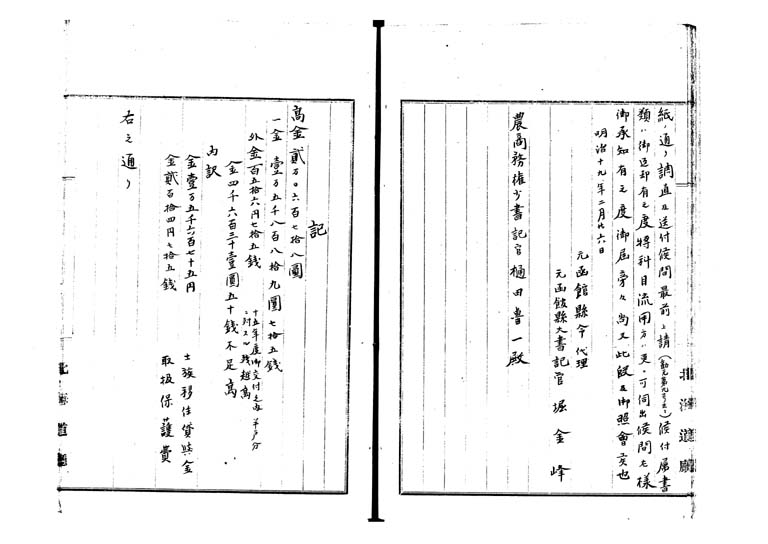 紙ノ通リ調直及送付候間最前ニ請(勧元第九号ニテ)候付属書
類ハ御返却有之度将科目流用方ハ更ニ可伺出候間左様
御承知有之度御届旁々尚又此段及御照會候也
明治十九年二月廿六日
元函館縣令代理
元函館縣大書記官 堀金峰
農商務権少書記官樋田魯一殿
北海道廳
記
高金貳万〇六百七拾八圓
一金壹万五千八百八拾九圓七拾五銭
外金百五拾六円七拾五銭
十五年度御交付之内
残越高
金四千六百三十壹圓五十銭不足高
内訳
金壹万五千六百七十五円 士族移住貸與金
金貳百拾四円七拾五銭 取扱保護費
右之通リ
北海道廳